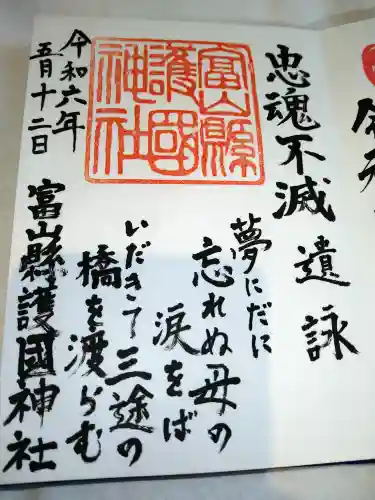 忠魂不滅 遺詠
夢にだに
忘れぬ母の
涙をば
いだきて三途の
橋を渡らむ
富山縣
護國
神社
令和六年
五月十二日
富山縣護國神社